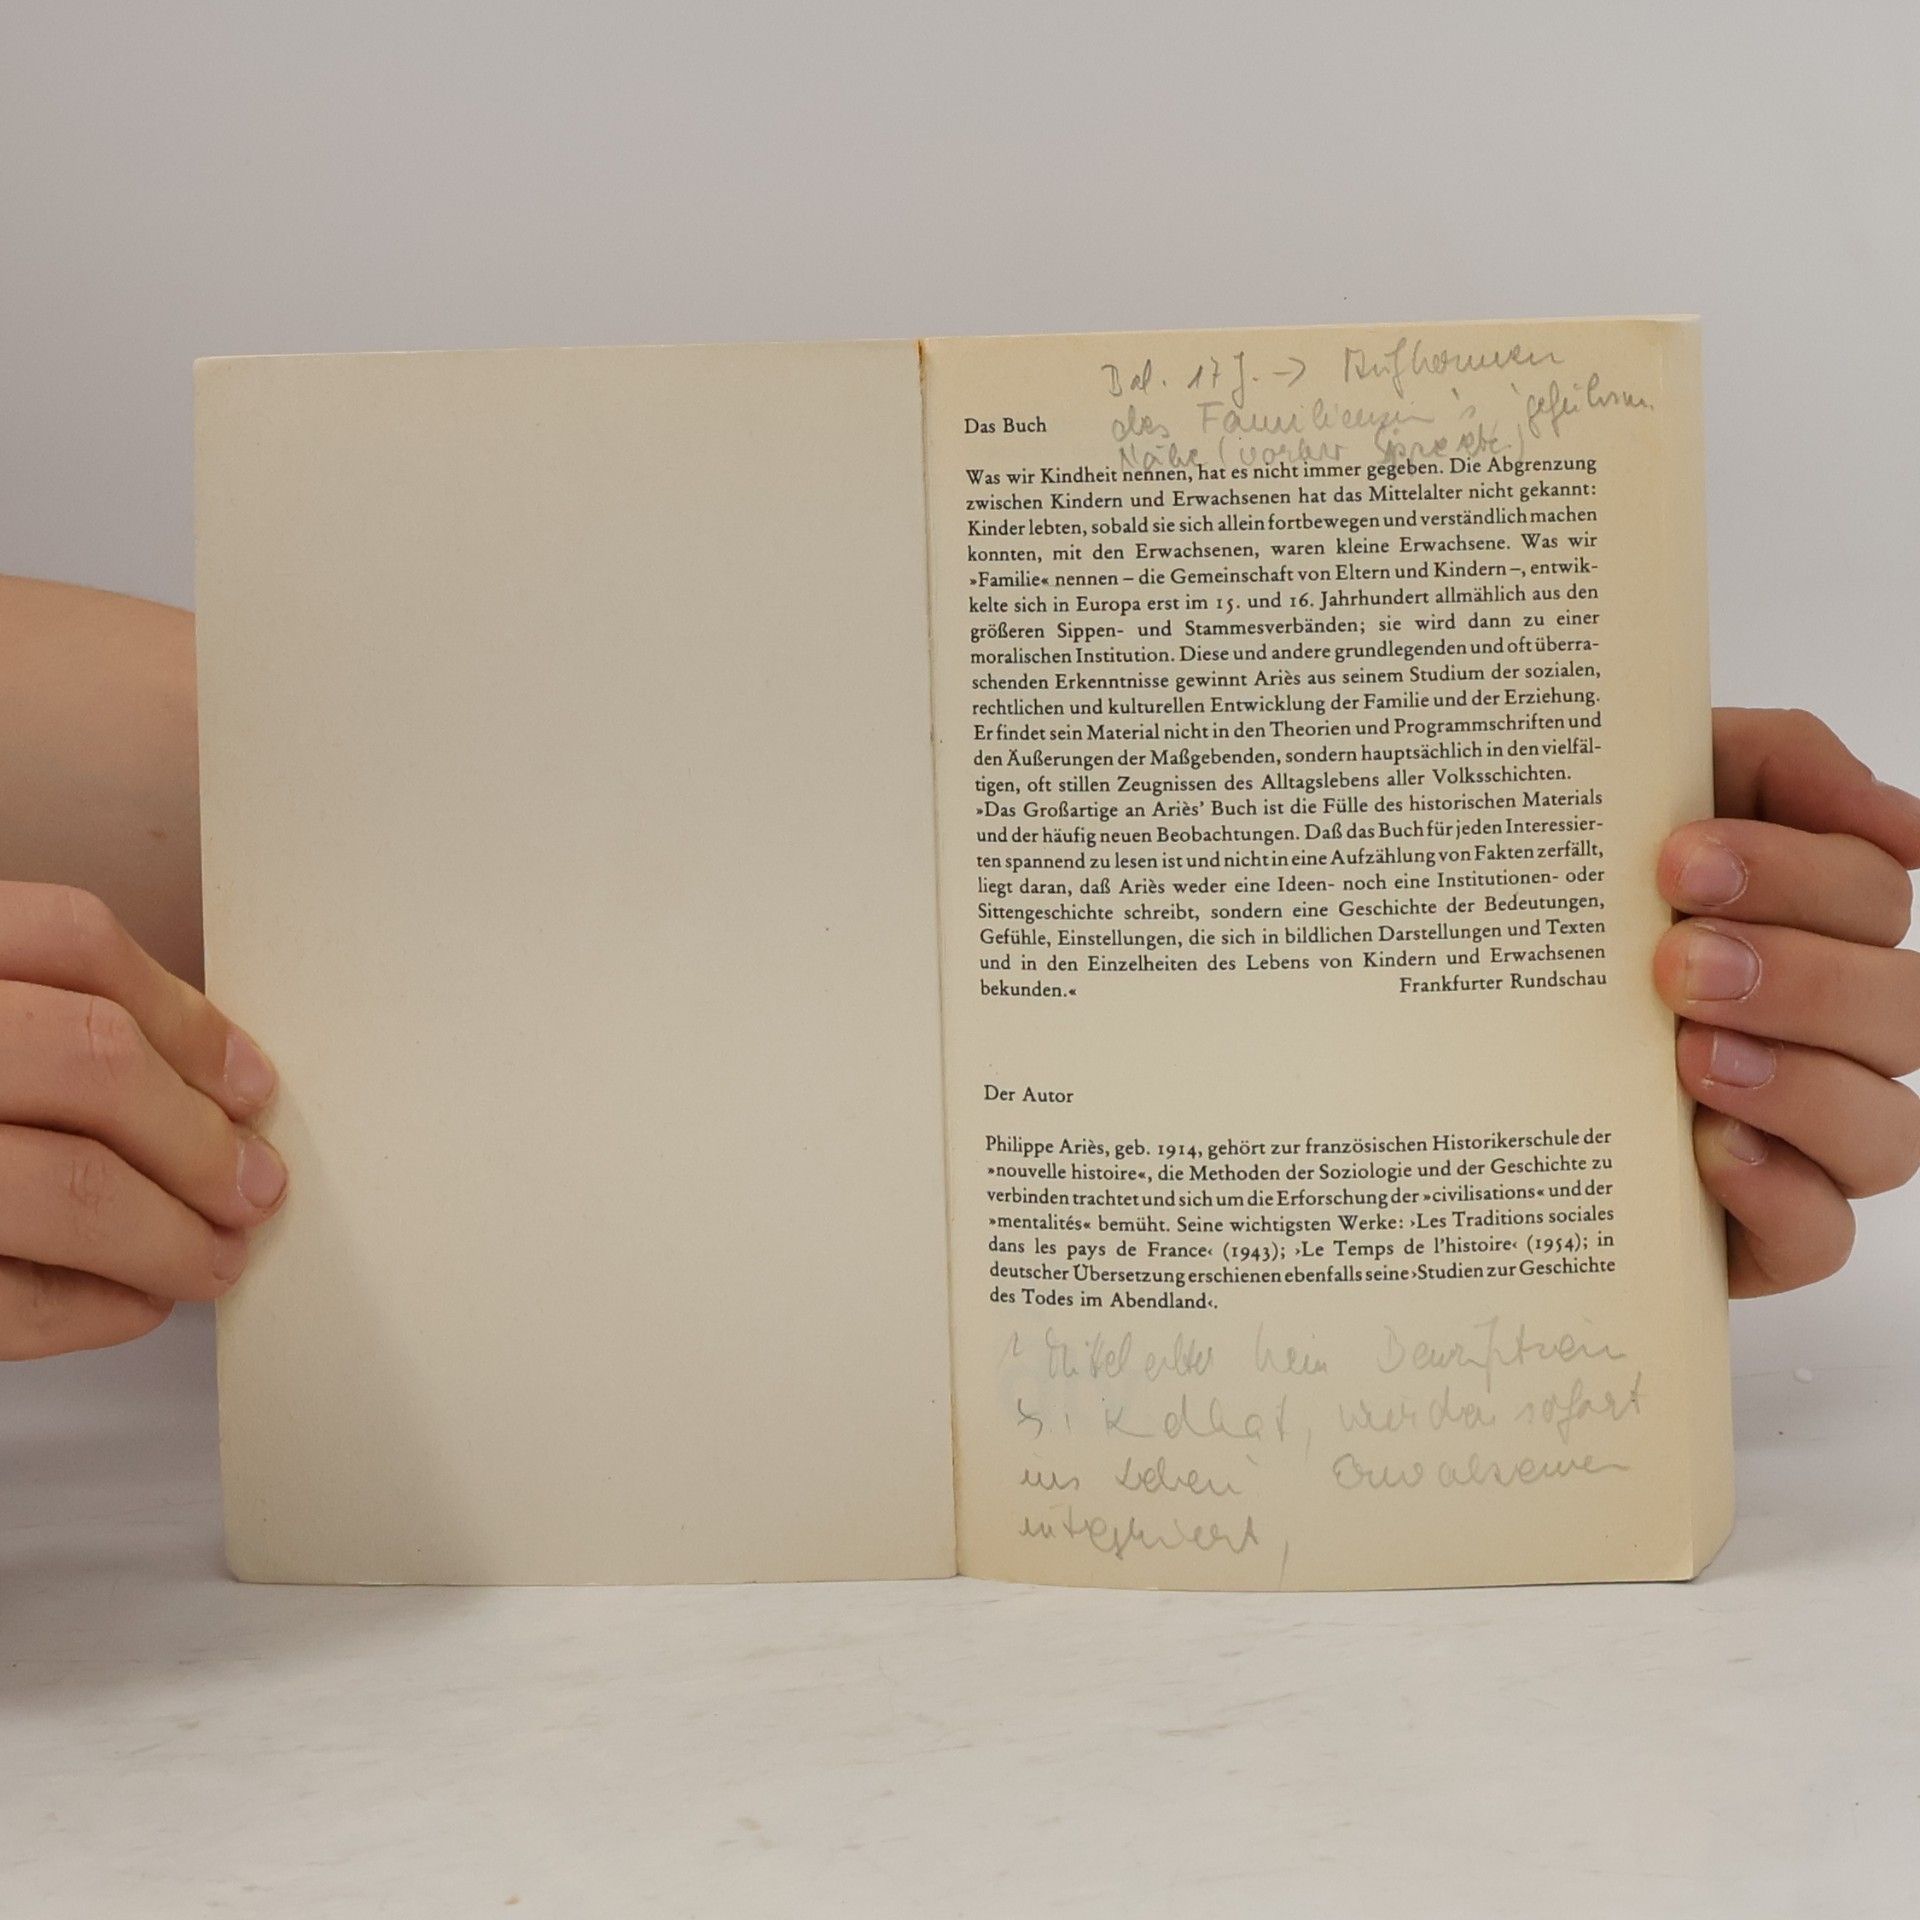 17 J. →
des
Das Buch
Was wir Kindheit nennen, hat es nicht immer gegeben. Die Abgrenzung
zwischen Kindern und Erwachsenen hat das Mittelalter nicht gekannt:
Kinder lebten, sobald sie sich allein fortbewegen und verständlich machen
konnten, mit den Erwachsenen, waren kleine Erwachsene. Was wir
»Familie« nennen – die Gemeinschaft von Eltern und Kindern –, entwik-
kelte sich in Europa erst im 15. und 16. Jahrhundert allmählich aus den
größeren Sippen- und Stammesverbänden; sie wird dann zu einer
moralischen Institution. Diese und andere grundlegenden und oft überra-
schenden Erkenntnisse gewinnt Ariès aus seinem Studium der sozialen,
rechtlichen und kulturellen Entwicklung der Familie und der Erziehung.
Er findet sein Material nicht in den Theorien und Programmschriften und
den Äußerungen der Maßgebenden, sondern hauptsächlich in den vielfäl-
tigen, oft stillen Zeugnissen des Alltagslebens aller Volksschichten.
»Das Großartige an Ariès’ Buch ist die Fülle des historischen Materials
und der häufig neuen Beobachtungen. Daß das Buch für jeden Interessier-
ten spannend zu lesen ist und nicht in eine Aufzählung von Fakten zerfällt,
liegt daran, daß Ariès weder eine Ideen- noch eine Institutionen- oder
Sittengeschichte schreibt, sondern eine Geschichte der Bedeutungen,
Gefühle, Einstellungen, die sich in bildlichen Darstellungen und Texten
und in den Einzelheiten des Lebens von Kindern und Erwachsenen
bekunden.« Frankfurter Rundschau
Der Autor
Philippe Ariès, geb. 1914, gehört zur französischen Historikerschule der
»nouvelle histoire«, die Methoden der Soziologie und der Geschichte zu
verbinden trachtet und sich um die Erforschung der »civilisations« und der
»mentalités« bemüht. Seine wichtigsten Werke: ›Les Traditions sociales
dans les pays de France‹ (1943); ›Le Temps de l’histoire‹ (1954); in
deutscher Übersetzung erschienen ebenfalls seine ›Studien zur Geschichte
des Todes im Abendland‹.
kein
werden sofort
ins Leben
integriert,